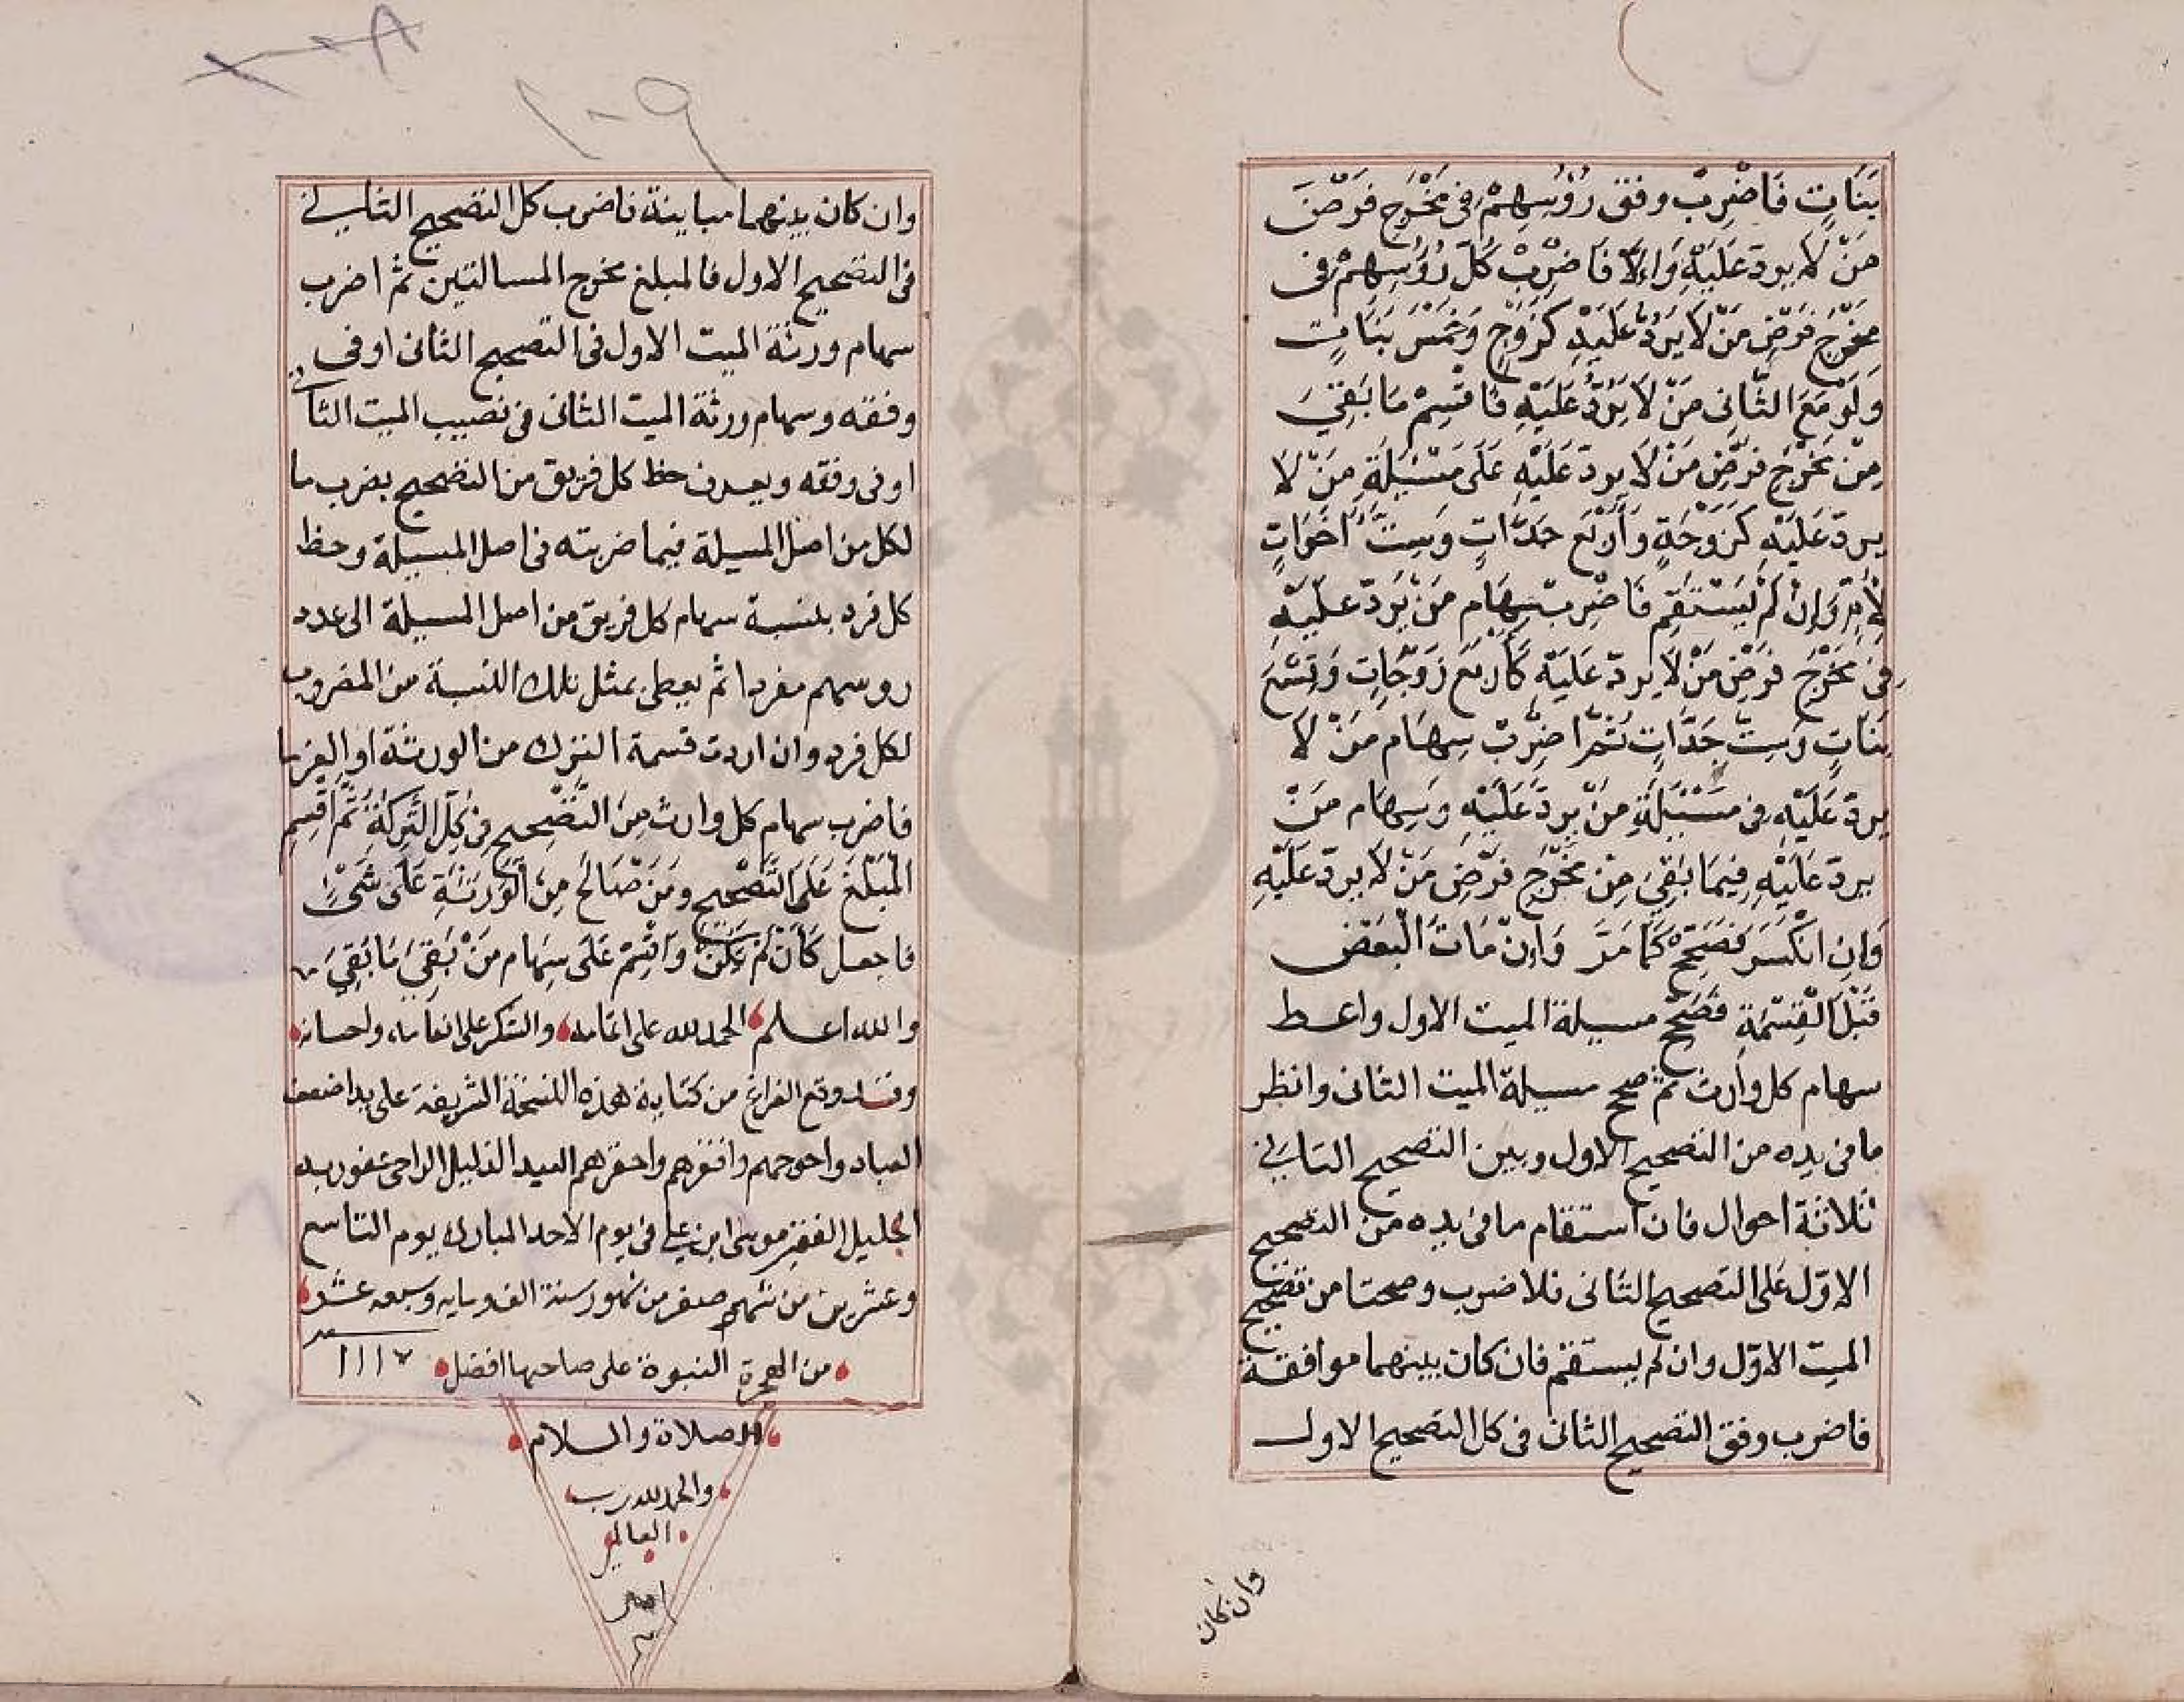 بَنَاتٍ فَاضْرِبْ وفق رُؤُسِهِمْ فِى مَخْرَجِ فَرْضِ
مَنْ لَا يرد عَلَيْهِ وَاِلَّا فَاضْرِبْ كُلَّ رُؤُسِهِمْ فى
مَخْرَجِ فَرْضِ مَنْ لَا يَرُدُّ عَلَيْهِ كَزَوْجٍ وَخَمْسَ بَنَاتٍ
وَلَوْ مَعَ الثَّانِى مَنْ لَا يَرُدُّ عَلَيْهِ فَاقْسِمْ مَا بَقِيَ
مِنْ مَخْرَجِ فَرْضِ مَنْ لَا يرد عَلَيْهِ عَلَى مَسْئَلَةِ مَنْ لَا
يرد عَلَيْهِ كَزَوْجَةٍ وَأَرْبَعَ جَدَّاتٍ وَسِتَّ اَخَوَاتٍ
لِأُمٍّ وَاِنْ لَمْ يَسْتَقِمْ فَاضْرِبْ سِهَامِ مَنْ يَرُدّ عَلَيْهِ
فِى مَخْرَجِ فَرْضِ مَنْ لَا يرد عَلَيْهِ كَأَرْبَعَ زَوْجَاتٍ وَتِسْعَ
بَنَاتٍ وَسِتَّ جَدَّاتٍ ثُمَّ اضْرِبْ سِهَام مَنْ لَا
يرد عَلَيْهِ فى مَسْئَلَةِ مَنْ يَرُدّ عَلَيْهِ وَسِهَام مَنْ
يرد عَلَيْهِ فِيمَا بَقِيَ مِنْ مَخْرَجِ فَرْضِ مَنْ لَا يرد عَلَيْهِ
وَاِنِ انْكَسَرَ فَصَحِّحْ كَمَا مَرَّ وَاِنْ مَاتَ الْبَعْض
قَبْلَ الْقِسْمَةِ فَصَحِّحْ مسيلة الميت الاول واعط
سهام كل وارث ثم صحح مسيلة الميت الثانى وانظر
ما فى يده من التصحيح الاول وبين التصحيح الثانى
ثلاثة احوال فان استقام ما فى يده من التصحيح
الاوّل على التصحيح الثانى فلا ضرب وصحتا من تصحيح
الميت الاوّل وان لم يستقم فان كان بينهما موافقة
فاضرب وفق التصحيح الثانى فى كل التصحيح الاول
وان كان
١٠٩
وان كان بينهما مباينة فاضرب كل التصحيح الثانى
فى التصحيح الاول فالمبلغ مخرج المسالتين ثم اضرب
سهام ورثة الميت الاول فى التصحيح الثانى او فى
وفقه وسهام ورثة الميت الثانى فى نصيب الميت الثانى
او فى وفقه ويعرف حظ كل فريق من التصحيح بضرب ما
لكل من اصل المسيلة فيما ضربته فى اصل المسيلة وحظ
كل فرد بنسبة سهام كل فريق من اصل المسيلة الى عدد
روسهم مفردا ثم يعطى بمثل تلك النسبة من المضروب
لكل فرد وان اردت قسمة الترك من الورثة او الغرما
فاضرب سهام كل وارث مِنَ التَّصْحِيحِ فِى كُلِّ التَّرِكَةِ ثُمَّ اقْسِمِ
الْمَبْلَغَ عَلَى التَّصْحِيحِ وَمَنْ صَالَحَ مِنَ الْوَرَثَةِ عَلَى شَىْءٍ
فاجعل كَأَنْ لَمْ يَكُنْ وَاقْسِمْ عَلَى سِهَام مَنْ بَقِيَ مَا بَقِيَ
والله اعلم الحمد لله على اتمامه والشكر على انعامه واحسانه
وقد وقع الفراغ من كتابة هذه النسخة الشريفة على يد اضعف
العباد واحوجهم وافقرهم واحقرهم العبد الذليل الراجى عفو ربه
الجليل الفقير موسى ابن على فى يوم الاحد المبارك يوم التاسع
وعشرين من شهر صفر من شهور سنة الف ومايه وسبعه عشر
من الهجرة النبوة على صاحبها افضل ١١١٧
الصلاة والسلام
والحمد لله رب
العالمين
امين